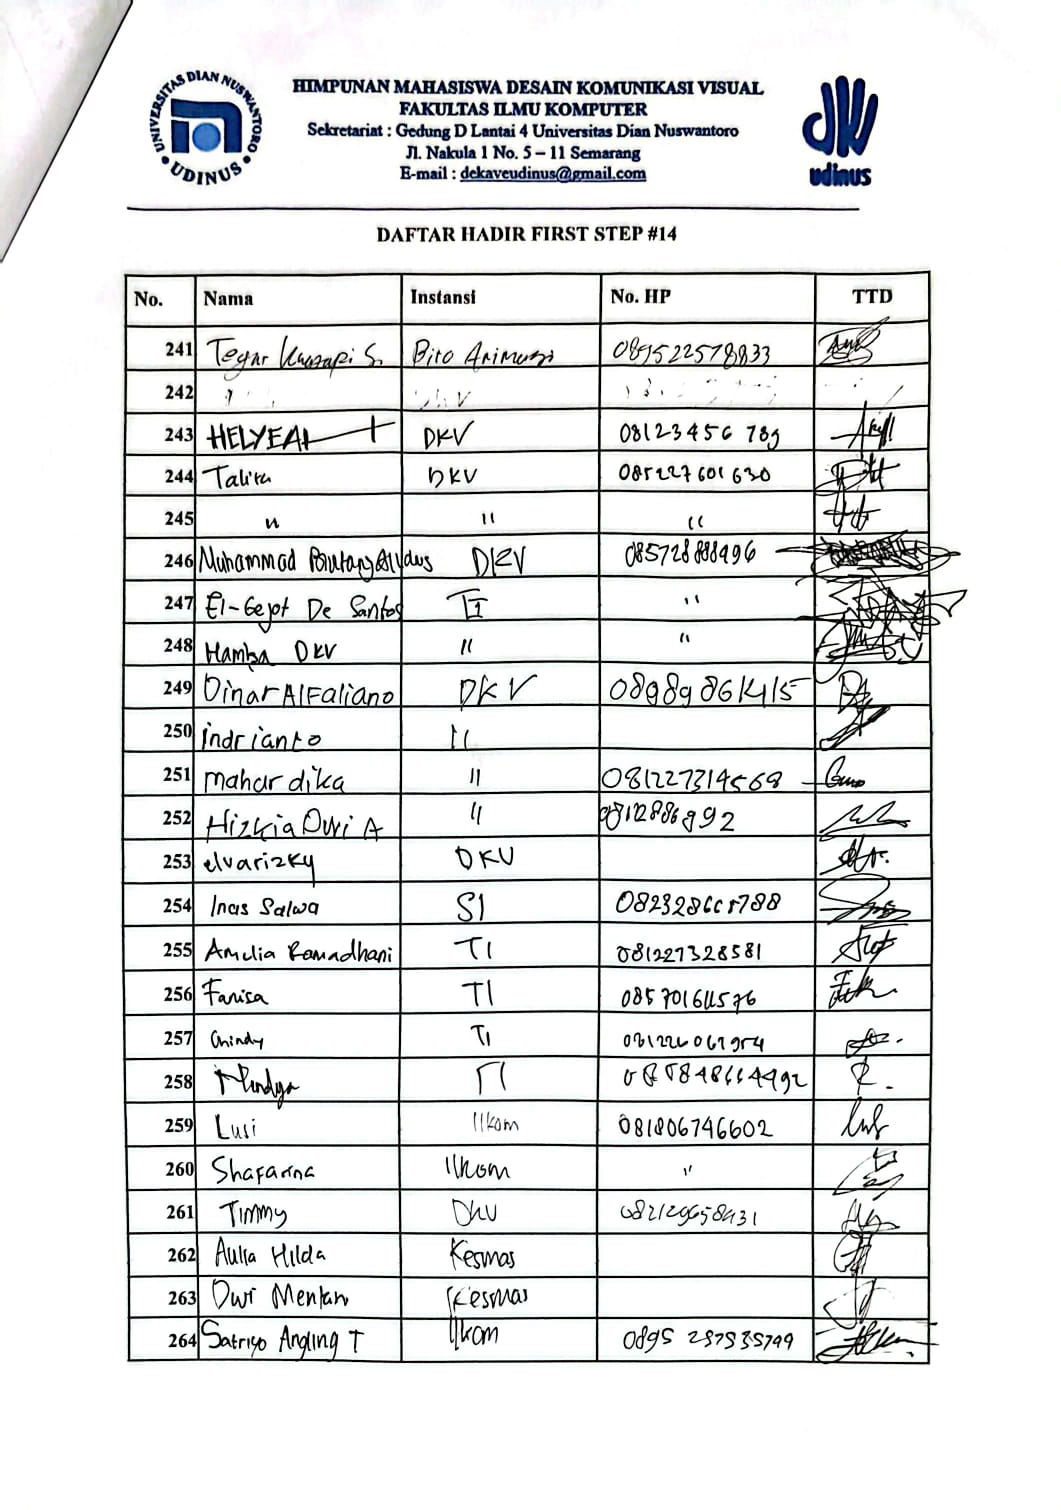 UNIVERSITAS DIAN NUSWANTORO
• UDINUS •
HIMPUNAN MAHASISWA DESAIN KOMUNIKASI VISUAL
FAKULTAS ILMU KOMPUTER
Sekretariat : Gedung D Lantai 4 Universitas Dian Nuswantoro
Jl. Nakula 1 No. 5 – 11 Semarang
E-mail : dekaveudinus@gmail.com
udinus
DAFTAR HADIR FIRST STEP #14
No. Nama Instansi No. HP TTD
241 Tegar S. 089522578833
242
243 HELYEAH DKV 08123456 789
244 Talita DKV 085227601630
245 " " "
246 Muhammad DKV 085728888496
247 El-Gept De Santos TI "
248 Hamba DKV " "
249 Dinar AlFaliano DKV 08989861415
250 indrianto "
251 mahardika " 081227314568
252 Hizkia Dwi A " 0812886992
253 elvarizky DKV
254 Inas Salwa SI
255 Amelia Ramadhani TI 081227328581
256 Farisa TI
257 Chindy TI
258 TI
259 Lusi Ilkom 081806746602
260 Shafanna Ilkom "
261 Timmy DKV
262 Aulia Hilda Kesmas
263 Dwi Mentari Kesmas
264 Satriyo Angling T Ilkom